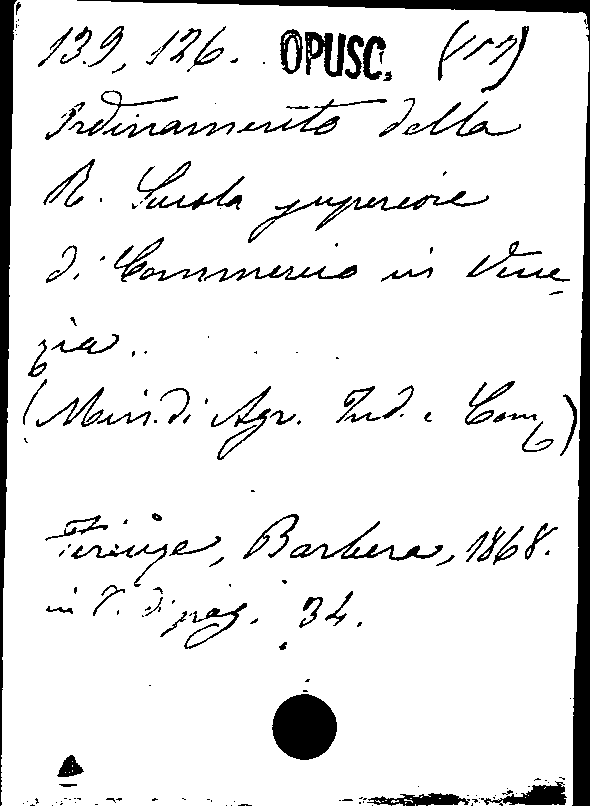 139, 126. OPUSC. (157)
Ordinamento della
R. Scuola superiore
di Commercio in Vene-
zia..
(Min. di Agr. Ind. e Com.)
Firenze, Barbera, 1868.
in 8.° di pag. 34.